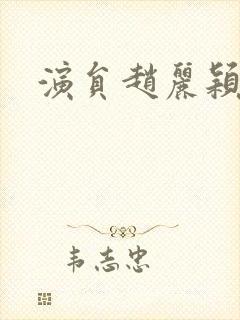 演員趙麗穎
韦志忠